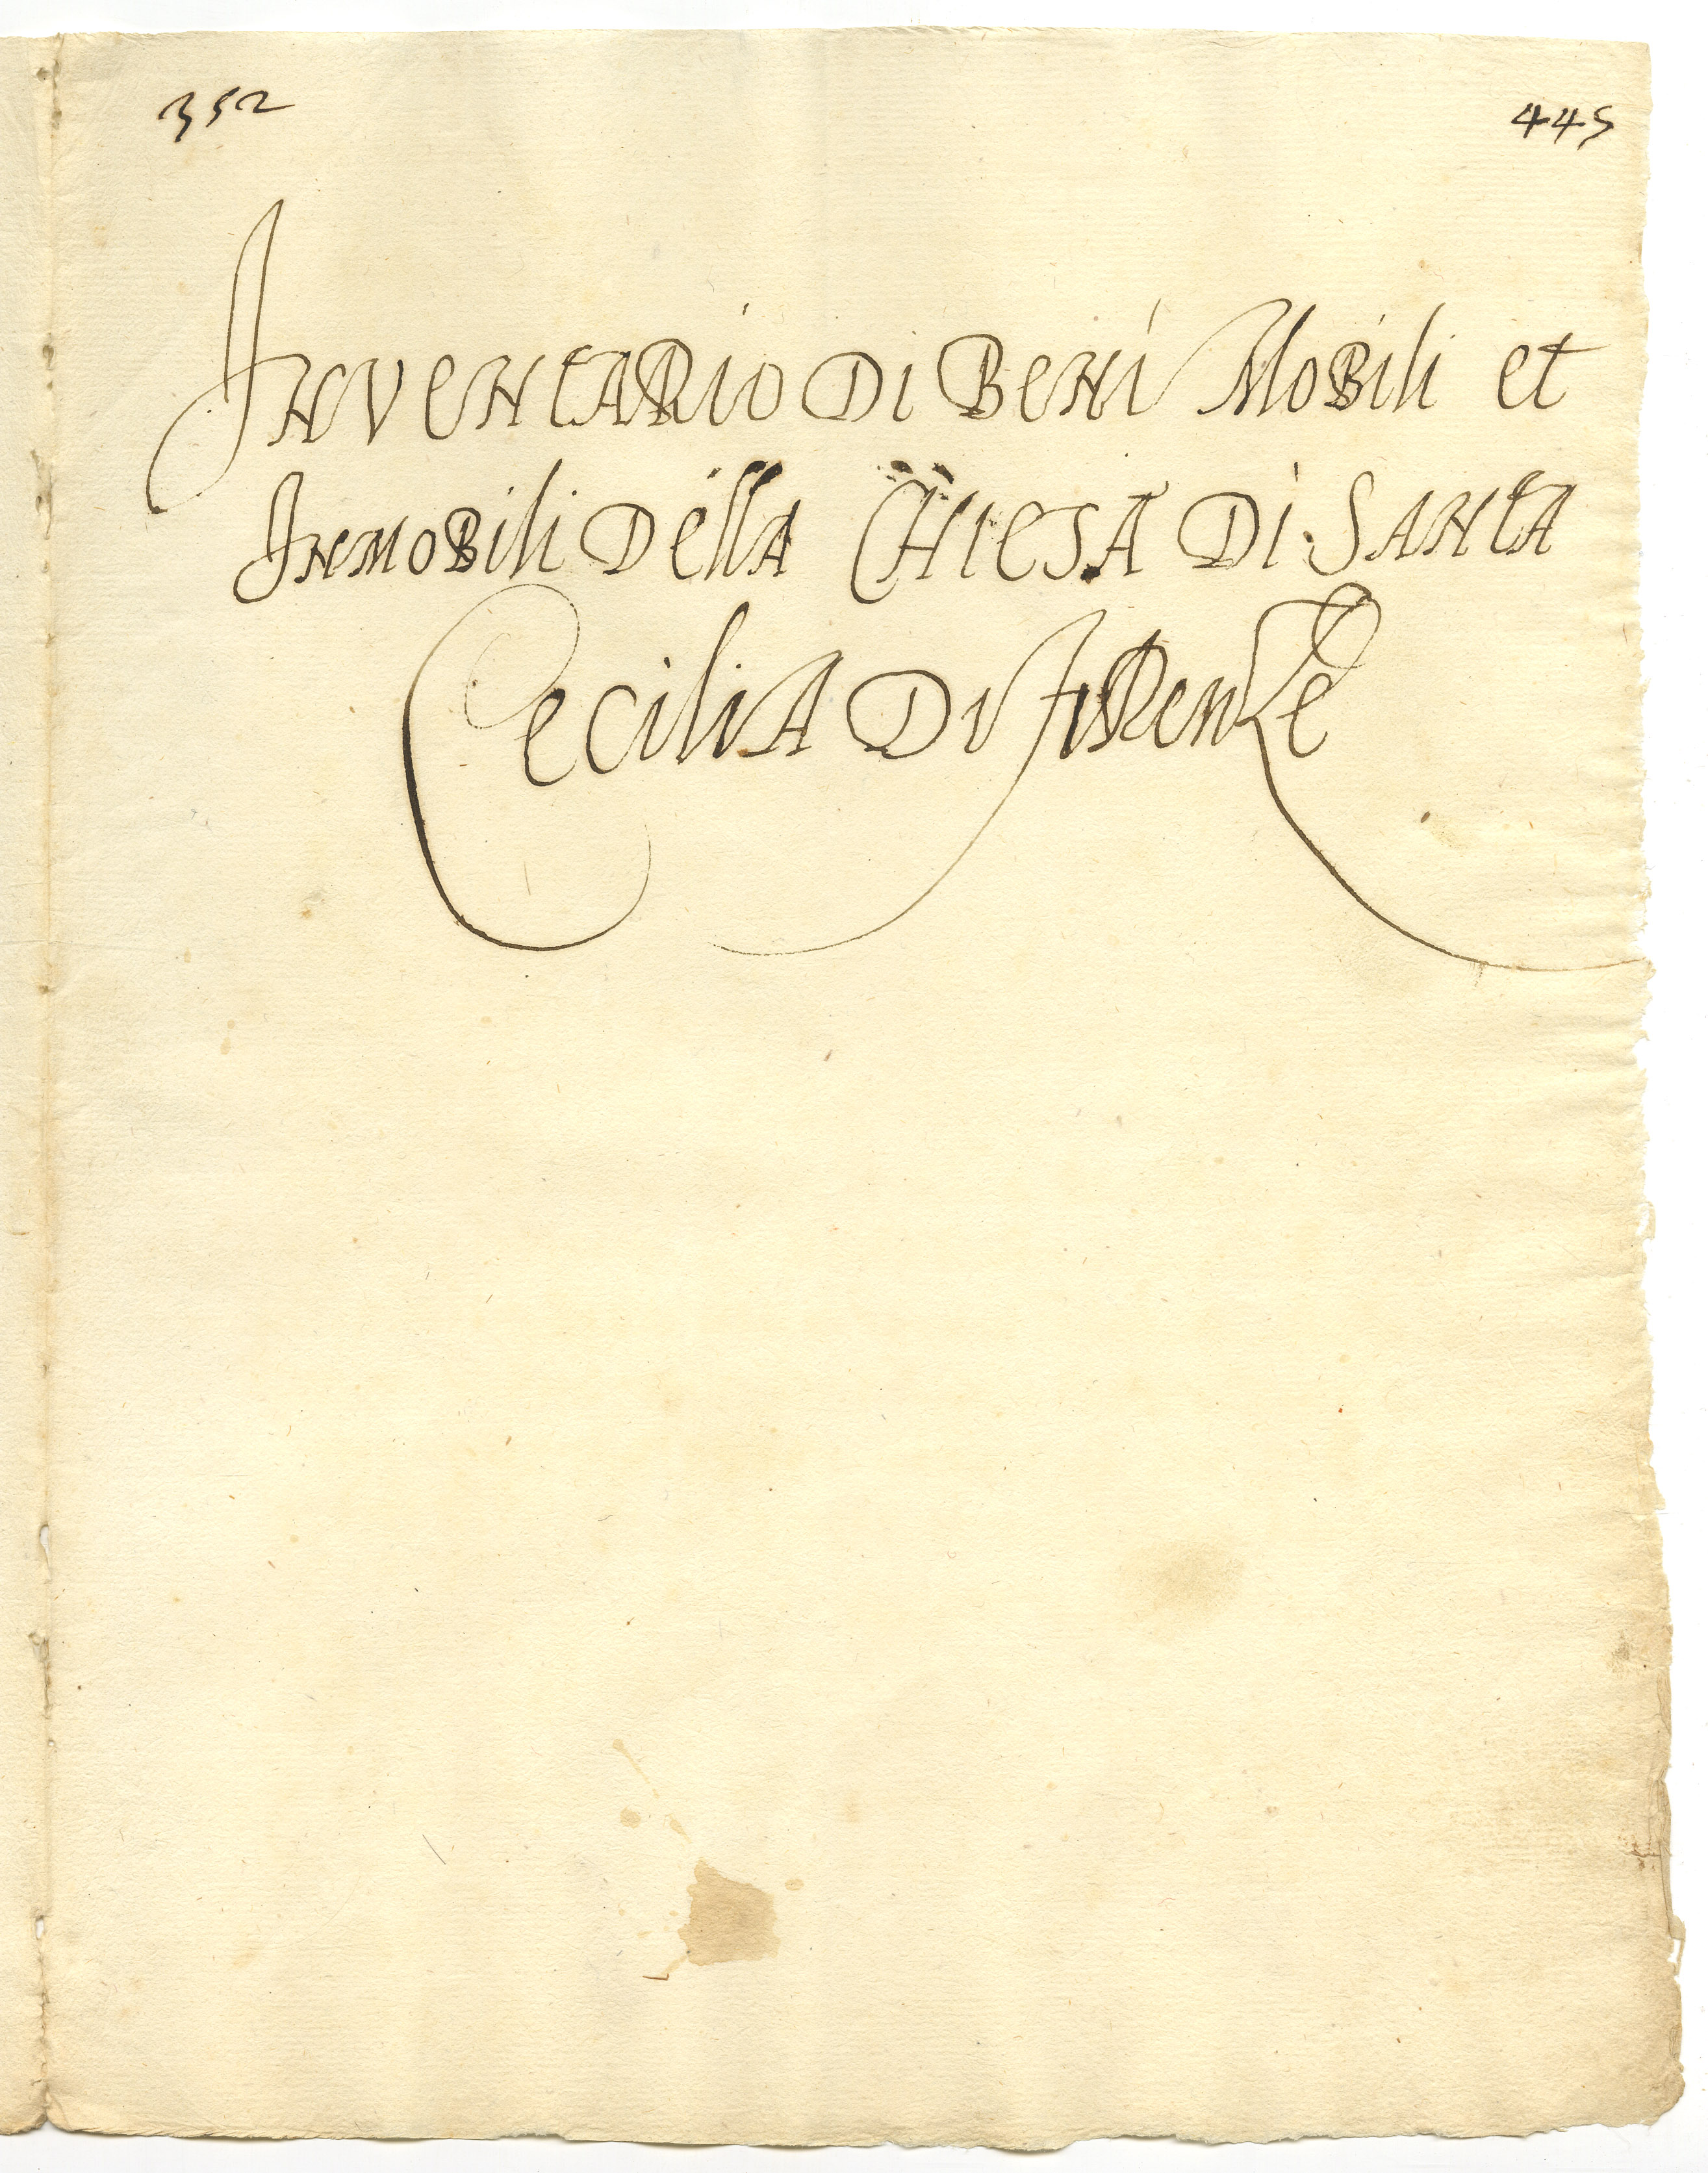 352
445
Inventario di Beni Mobili et
Inmobili della Chiesa di Santa
Cecilia di Firenze